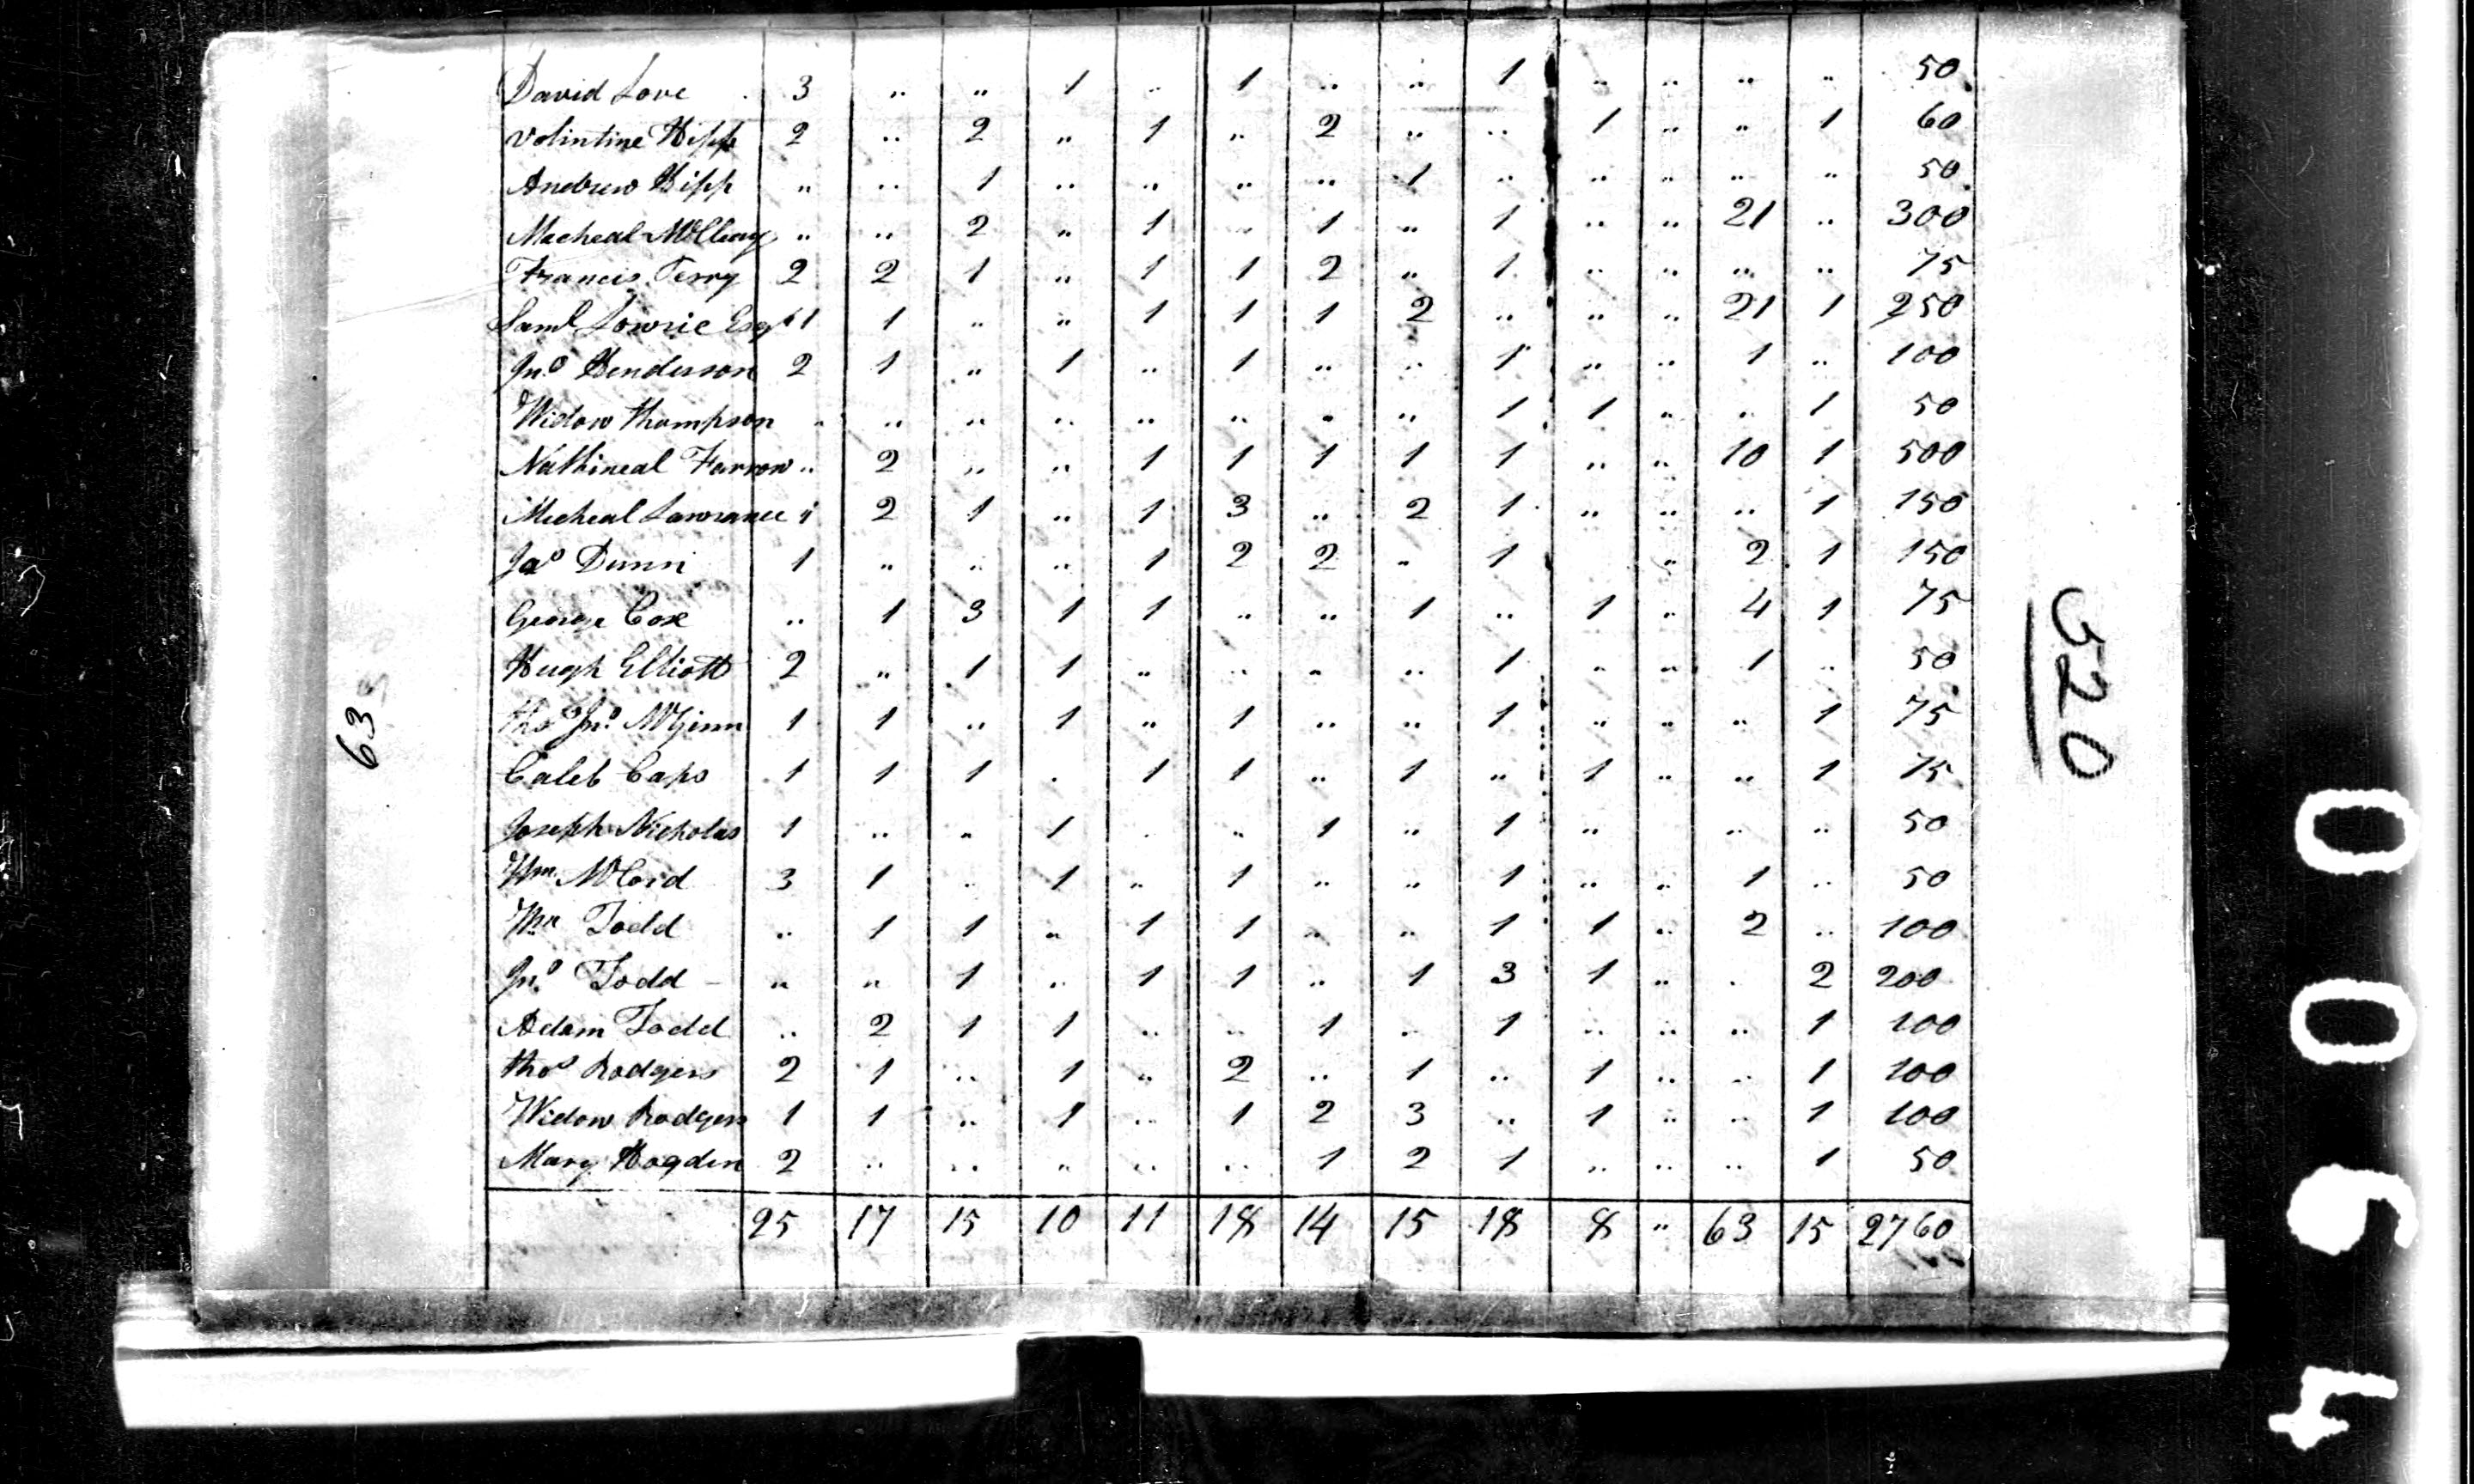 David Love 3 .. .. 1 .. 1 .. .. 1 .. .. .. .. 50
Volintine Hipp 2 .. 2 .. 1 .. 2 .. .. 1 .. .. 1 60
Andrew Hipp .. .. 1 .. .. .. .. 1 .. .. .. .. .. 50
Macheal .. .. 2 .. 1 .. 1 .. 1 .. .. 21 .. 300
Francis Terry 2 2 1 .. 1 1 2 .. 1 .. .. .. .. 75
Saml Lowrie Esqr 1 1 .. .. 1 1 1 2 .. .. .. 21 1 250
Jno Henderson 2 1 .. 1 .. 1 .. .. 1 .. .. 1 .. 100
Widow thompson .. .. .. .. .. .. .. .. 1 1 .. .. 1 50
Nathineal Farrow .. 2 .. .. 1 1 1 1 1 .. .. 10 1 500
Micheal Lawrance .. 2 1 .. 1 3 .. 2 1 .. .. .. 1 150
Jas Dunn 1 .. .. .. 1 2 2 .. 1 .. 2 1 150
George Cox .. 1 3 1 1 .. .. 1 .. 1 .. 4 1 75
Hugh Elliott 2 .. 1 1 .. .. .. .. 1 .. .. 1 .. 50
thos Jno McGinn 1 1 .. 1 .. 1 .. .. 1 .. .. .. 1 75
Caleb Caps 1 1 1 . 1 1 .. 1 .. 1 .. .. 1 75
Joseph Nicholas 1 .. .. 1 . .. 1 .. 1 .. .. .. 50
Wm McCord 3 1 .. 1 .. 1 .. .. 1 .. .. 1 .. 50
Wm Todd .. 1 1 .. 1 1 .. .. 1 1 .. 2 .. 100
Jno Todd - .. .. 1 .. 1 1 .. 1 3 1 .. . 2 200
Adam Todd .. 2 1 1 .. .. 1 .. 1 .. .. .. 1 100
thos Rodgers 2 1 .. 1 .. 2 .. 1 .. 1 .. .. 1 100
Widow Rodgers 1 1 .. 1 .. 1 2 3 .. 1 .. .. 1 100
Mary Hogden 2 .. .. .. .. .. 1 2 1 .. .. .. 1 50
25 17 15 10 11 18 14 15 18 8 .. 63 15 2760
63
520
0064